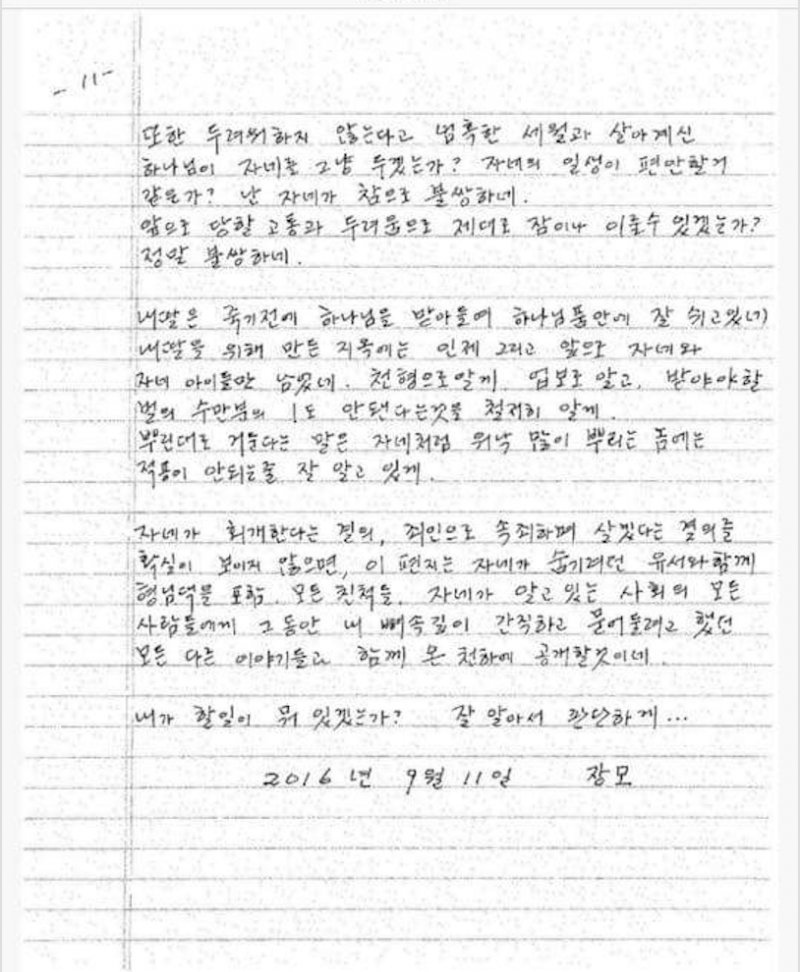 - 11 -
또한 두려워하지 않는다고 넘혹한 세월과 살아계신
하나님이 자네를 그냥 두겠는가? 자녀의 일생이 편안할거
같은가? 난 자네가 참으로 불쌍하네.
앞으로 당할 고통과 두려움으로 제대로 잠이나 이룰수 있겠는가?
정말 불쌍하네.
내딸은 죽기전에 하나님을 받아들여 하나님품안에 잘 쉬고있네
내딸을 위해 만든 지옥에는 인제 그리고 앞으로 자네와
자네 아이들만 남았네. 천형으로알게. 업보로 알고, 받아야할
벌의 수만분의 1도 안됐다는것을 철저히 알게.
뿌린대로 거둔다는 말은 자네처럼 워낙 많이 뿌리는 놈에는
적용이 안되는줄 잘 알고 있게.
자네가 회개한다는 결의, 죄인으로 속죄하며 살겠다는 결의를
확실히 보이지 않으면, 이 편지는 자네가 숨기려던 유서와함께
형님댁을 포함, 모든 친척들, 자네가 알고 있는 사회의 모든
사람들에게 그동안 내 뼈속깊이 간직하고 묻어둘려고 했던
모든 다른 이야기들과 함께 온 천하에 공개할것이네.
내가 할일이 뭐 있겠는가? 잘 알아서 판단하게...
2016년 9월 11일 장모